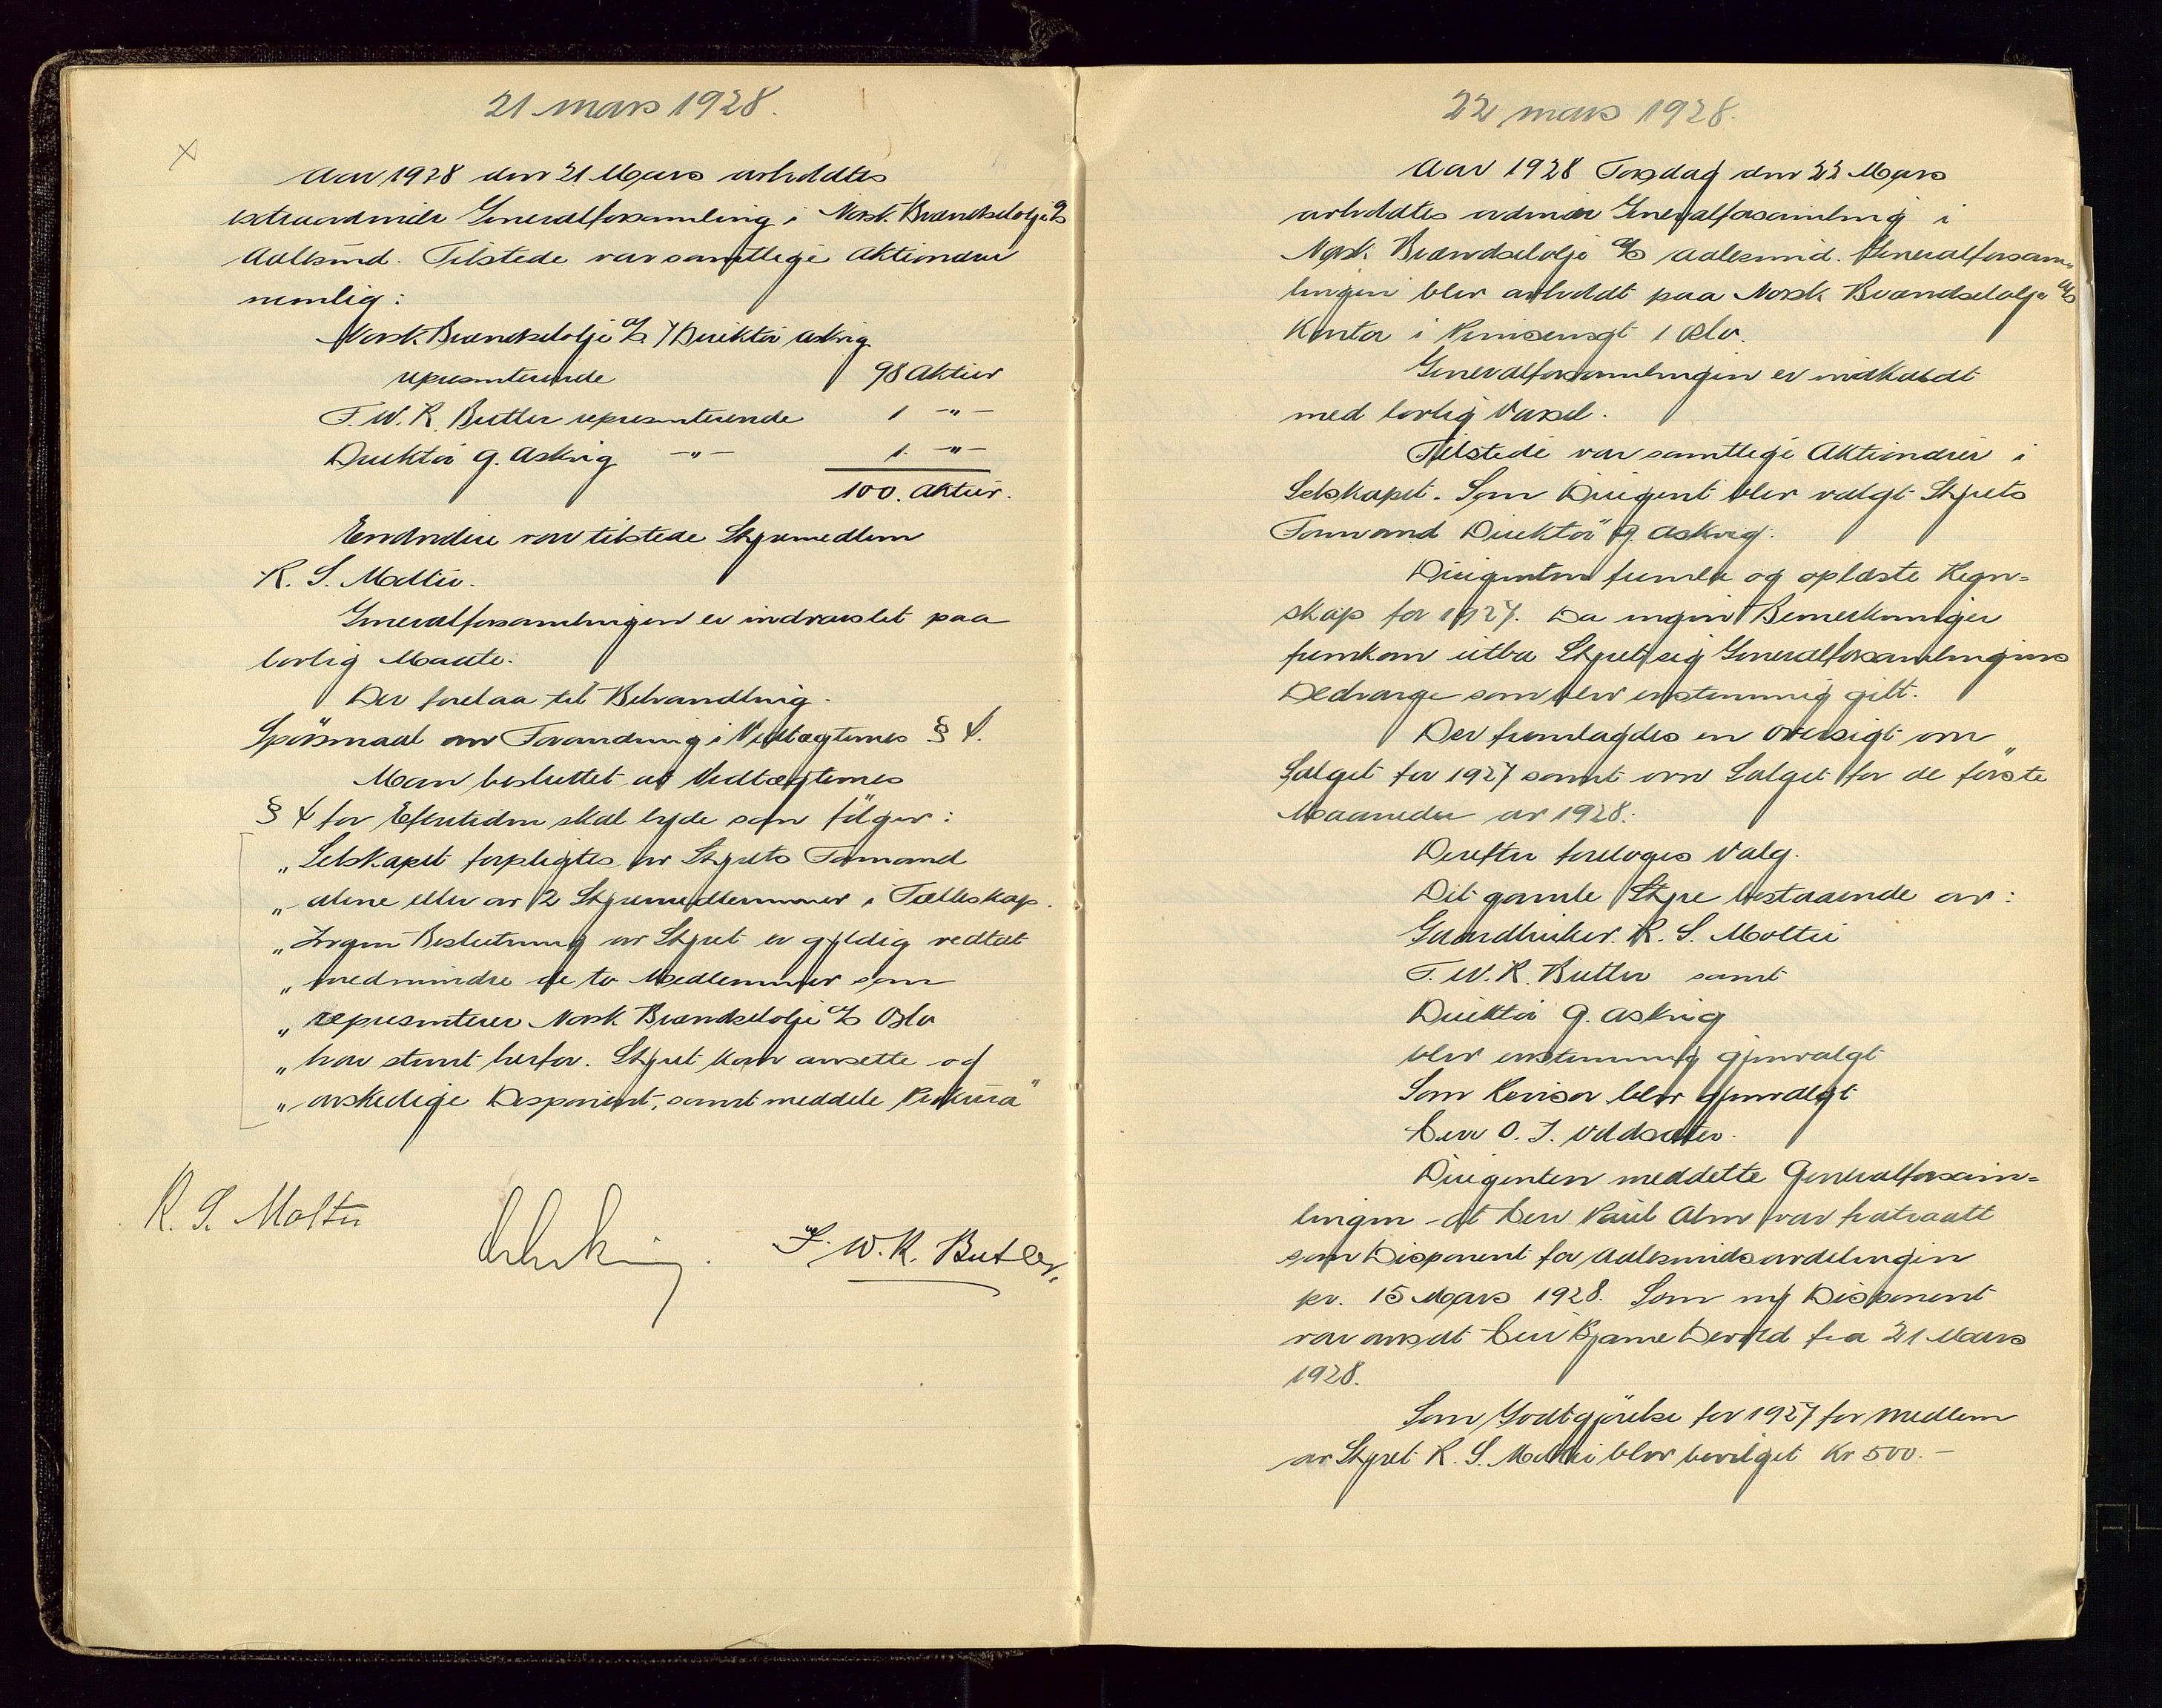 21 mars 1928.
Aar 1928 den 21 Mars avholdtes
extraordinær Generalforsamling i Norsk Brændselolje A/S
Aalesund. Tilstede var samtlige Aktionærer
nemlig:
Norsk Brændselolje A/S v/ Direktör Askvig
representerende 98 Aktier
F. W. R. Butler representerende 1 -"-
Direktör G. Askvig -"- 1. -"-
100. Aktier.
Endvidere var tilstede Styremedlem
R. S. Moltu.
Generalforsamlingen er indvarslet paa
lovlig Maate.
Der forelaa til Behandling.
Spörsmaal om Forandring i Vedtægternes § 4.
Man besluttet at Vedtægternes
§ 4 for Eftertiden skal lyde som fölger:
„Selskapet forpligtes av Styrets Formand
„alene eller av 2 Styremedlemmer i Fælleskap.
„Ingen Beslutning av Styret er gyldig vedtat
„medmindre de to Medlemmer som
„representerer Norsk Brændselolje A/S Oslo
„har stemt herfor. Styret kan ansette og
„avskedige Disponent, samt meddele Prokura"
R. S. Moltu
F. W. R. Butler,
22 mars 1928.
Aar 1928 Torsdag den 22 Mars
avholdtes ordinær Generalforsamling i
Norsk Brændselolje A/S Aalesund. Generalforsam-
lingen blev avholdt paa Norsk Brændselolje A/S
Kontor i Prinsensgt 1 Oslo.
Generalforsamlingen er indkaldt
med lovlig Varsel.
Tilstede var samtlige Aktionærer i
Selskapet. Som Dirigent blev valgt Styrets
Formand Direktör G. Askvig.
Dirigenten fremla og oplæste Regn=
skap for 1927. Da ingen Bemerkninger
fremkom utba Styret sig Generalforsamlingens
Decharge som blev enstemmig gitt.
Der fremlagdes en Oversigt om
Salget for 1927 samt om Salget for de förste
Maaneder av 1928.
Derefter foretoges Valg.
Det gamle Styre bestaaende av:
Grandhuker. R. S. Moltu
F. W. R. Butler samt
Direktör G. Askvig
blev enstemmig gjenvalgt
Som Revisor blev gjenvalgt
Herr O. J. Uldsæter.
Dirigenten meddelte Generalforsam=
lingen at Herr Paul Alm var fratraatt
som Disponent for Aalesundsavdelingen
pr. 15 Mars 1928. Som ny Disponent
var ansat Herr Bjarne Devold fra 21 Mars
1928.
Som Godtgjörelse for 1927 for Medlem
av Styret R. S. Moltu blev bevilget Kr 500.-